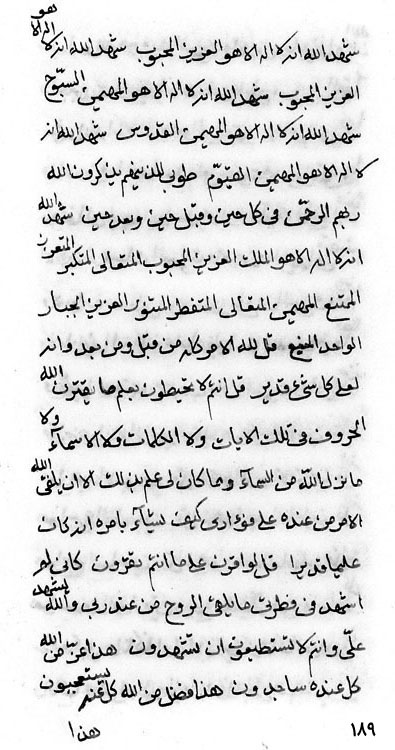 هو
شهد الله انه لا اله الا هو العزيز المحبوب شهد الله انه لا اله الا
العزيز المحبوب شهد الله انه لا اله الا هو المهيمن السبوح
شهد الله انه لا اله الا هو المهيمن القدوس شهد الله انه
لا اله الا هو المهيمن القيوم طوبى للذينهم يذكرون الله
ربهم الرحمن فى كل حين وقبل حين وبعد حين شهد الله
انه لا اله الا هو الملك العزيز المحبوب المتعالى المتكبر
الممتنع المهيمن المتعالى العزيز الجبار
الواحد المنيع قل لله الامر كله من قبل ومن بعد وانه
لعلى كل شىء قدير قل انتم لا تحيطون بعلم ما الله
الحروف فى تلك الايات ولا الكلمات ولا الاسماء ولا
ما نزل الله من السماء وما كان لى علم بذلك الا ان يلقى الله
الامر من عنده على فؤادى كيف يشآء بامره انه كان
عليما قديرا قل لو اقرن على ما انتم تقرؤن
اشهد فى فطرتى ما يلقى الروح من عند ربى والله يشهد
على وانتم لا تستطيعون ان تشهدون هذا من الله
كل عنده ساجدون هذا فضل من الله كل عنه
هذا
١٨٩